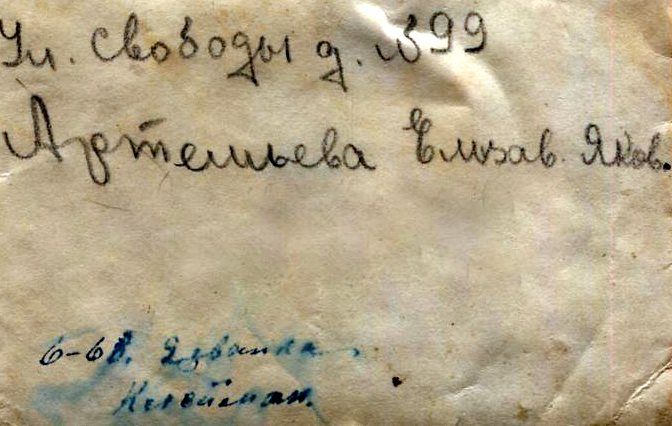 Ул. Свободы д. № 99
Артемьева Елизав. Яков.
6-68.